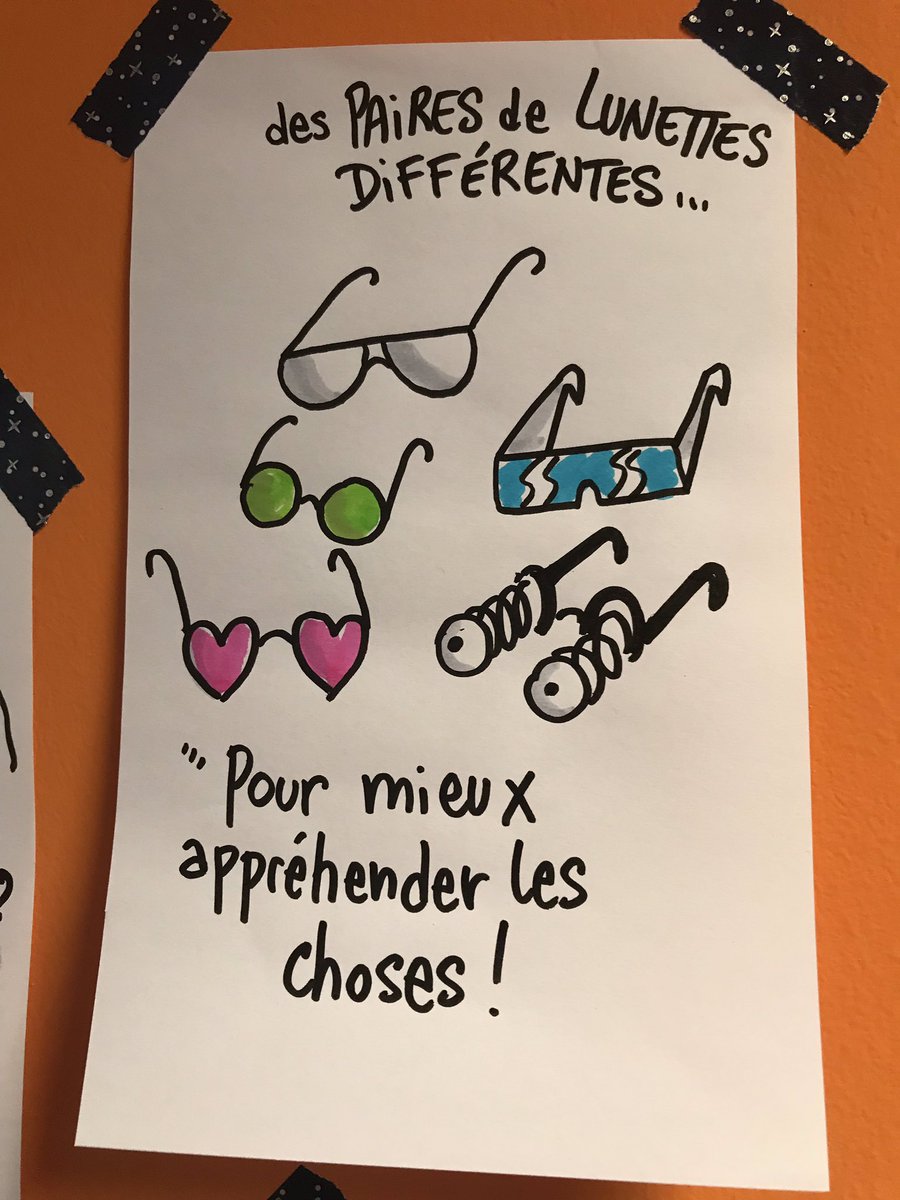 des PAiRES de LUNETTES
DiFFÉRENTES...
...Pour mieux
appréhender les
choses !